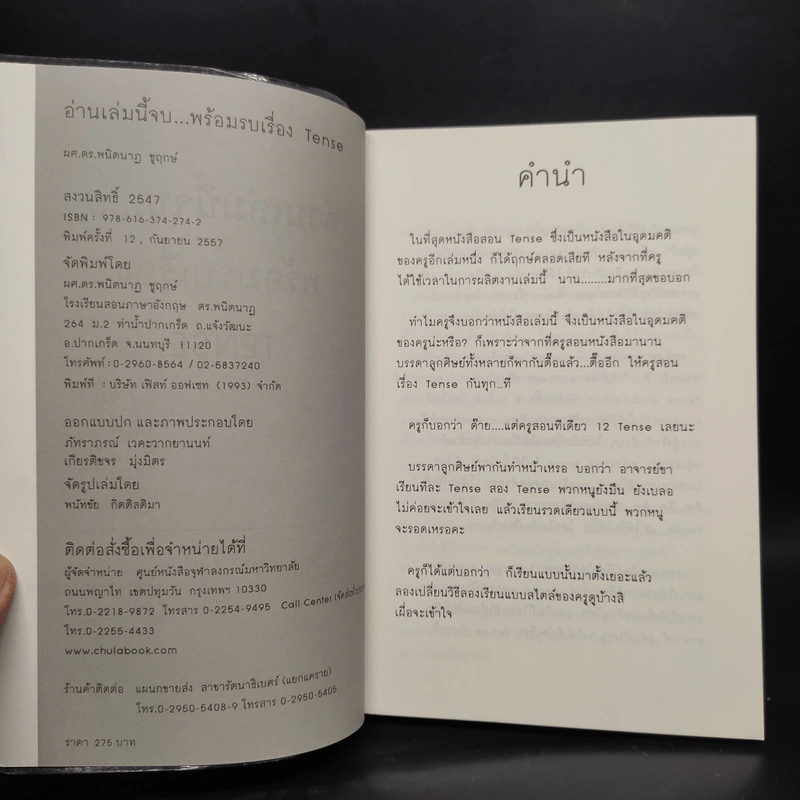 อ่านเล่มนี้จบ...พร้อมรบเรื่อง Tense
ผศ.ดร.พนิตนาฏ ชูฤกษ์
สงวนสิทธิ์ 2547
ISBN : 978-616-374-274-2
พิมพ์ครั้งที่ 12 , กันยายน 2557
จัดพิมพ์โดย
ผศ.ดร.พนิตนาฏ ชูฤกษ์
โรงเรียนสอนภาษาอังกฤษ ดร.พนิตนาฏ
264 ม.2 ท่าน้ำปากเกร็ด ถ.แจ้งวัฒนะ
อ.ปากเกร็ด จ.นนทบุรี 11120
โทรศัพท์ : 0-2960-8564 / 02-5837240
พิมพ์ที่ : บริษัท เฟิสท์ ออฟเซท (1993) จำกัด
ออกแบบปก และภาพประกอบโดย
ภัทราภรณ์ เวคะวากยานนท์
เกียรติขจร มุ่งมิตร
จัดรูปเล่มโดย
พนัทชัย กิตติสติมา
ติดต่อสั่งซื้อเพื่อจำหน่ายได้ที่
ผู้จัดจำหน่าย ศูนย์หนังสือจุฬาลงกรณ์มหาวิทยาลัย
ถนนพญาไท เขตปทุมวัน กรุงเทพฯ 10330
โทร.0-2218-9872 โทรสาร 0-2254-9495 Call Center
โทร.0-2255-4433
www.chulabook.com
ร้านค้าติดต่อ แผนกขายส่ง สาขารัตนาธิเบศร์ (แยกแคราย)
โทร.0-2950-5408-9 โทรสาร 0-2950-5405
ราคา 275 บาท
คำนำ
ในที่สุดหนังสือสอน Tense ซึ่งเป็นหนังสือในอุดมคติ
ของครูอีกเล่มหนึ่ง ก็ได้ฤกษ์คลอดเสียที หลังจากที่ครู
ได้ใช้เวลาในการผลิตงานเล่มนี้ นาน........มากที่สุดขอบอก
ทำไมครูจึงบอกว่าหนังสือเล่มนี้ จึงเป็นหนังสือในอุดมคติ
ของครูน่ะหรือ? ก็เพราะว่าจากที่ครูสอนหนังสือมานาน
บรรดาลูกศิษย์ทั้งหลายก็พากันตื๊อแล้ว...ตื๊ออีก ให้ครูสอน
เรื่อง Tense กันทุก...ที
ครูก็บอกว่า ด๊าย....แต่ครูสอนทีเดียว 12 Tense เลยนะ
บรรดาลูกศิษย์พากันทำหน้าเหรอ บอกว่า อาจารย์ขา
เรียนทีละ Tense สอง Tense พวกหนูยังมึน ยังเบลอ
ไม่ค่อยจะเข้าใจเลย แล้วเรียนรวดเดียวแบบนี้ พวกหนู
จะรอดเหรอคะ
ครูก็ได้แต่บอกว่า ก็เรียนแบบนั้นมาตั้งเยอะแล้ว
ลองเปลี่ยนวิธีลองเรียนแบบสไตล์ของครูดูบ้างสิ
เผื่อจะเข้าใจ